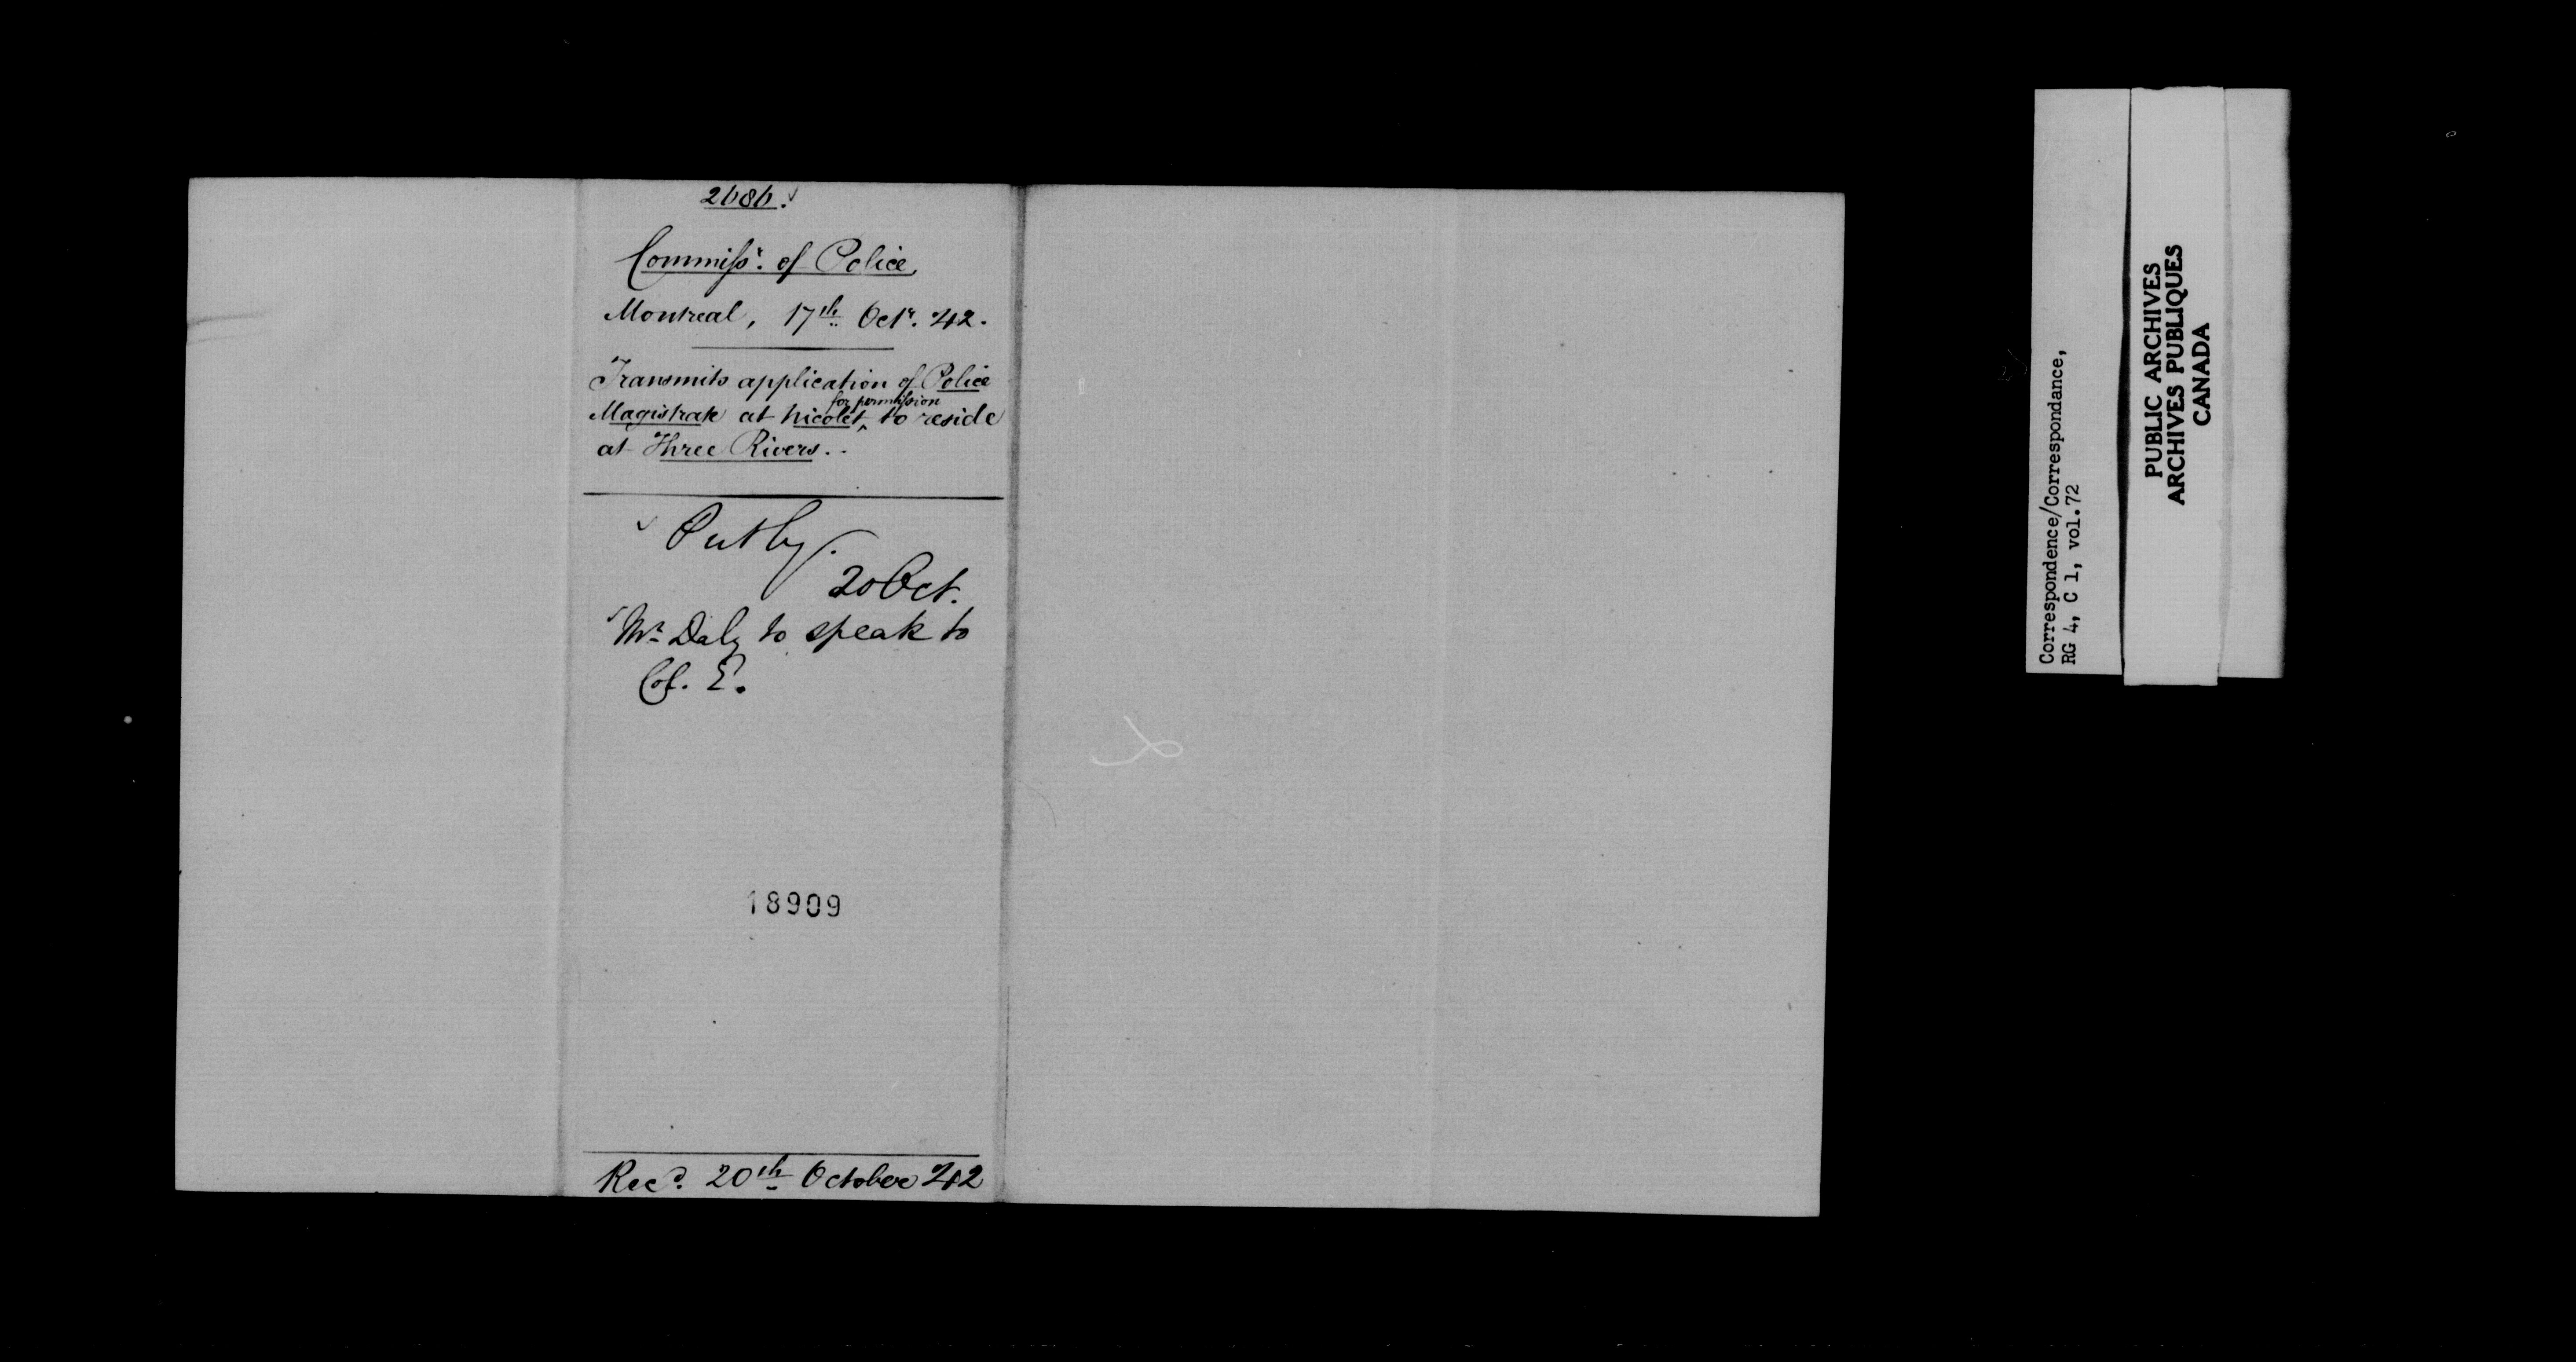 2686.
Commissr. of Police,
Montreal, 17th Octr. 42.
Transmits application of Police
for permission
Magistrate at Nicolet ‸ to reside
at Three Rivers.
Put by.
20 Oct.
Mr. Daly to speak to
Col. E.
18909
Recd. 20th October 42
Correspondence/Correspondance,
RG 4, C 1, vol.72
PUBLIC ARCHIVES
ARCHIVES PUBLIQUES
CANADA